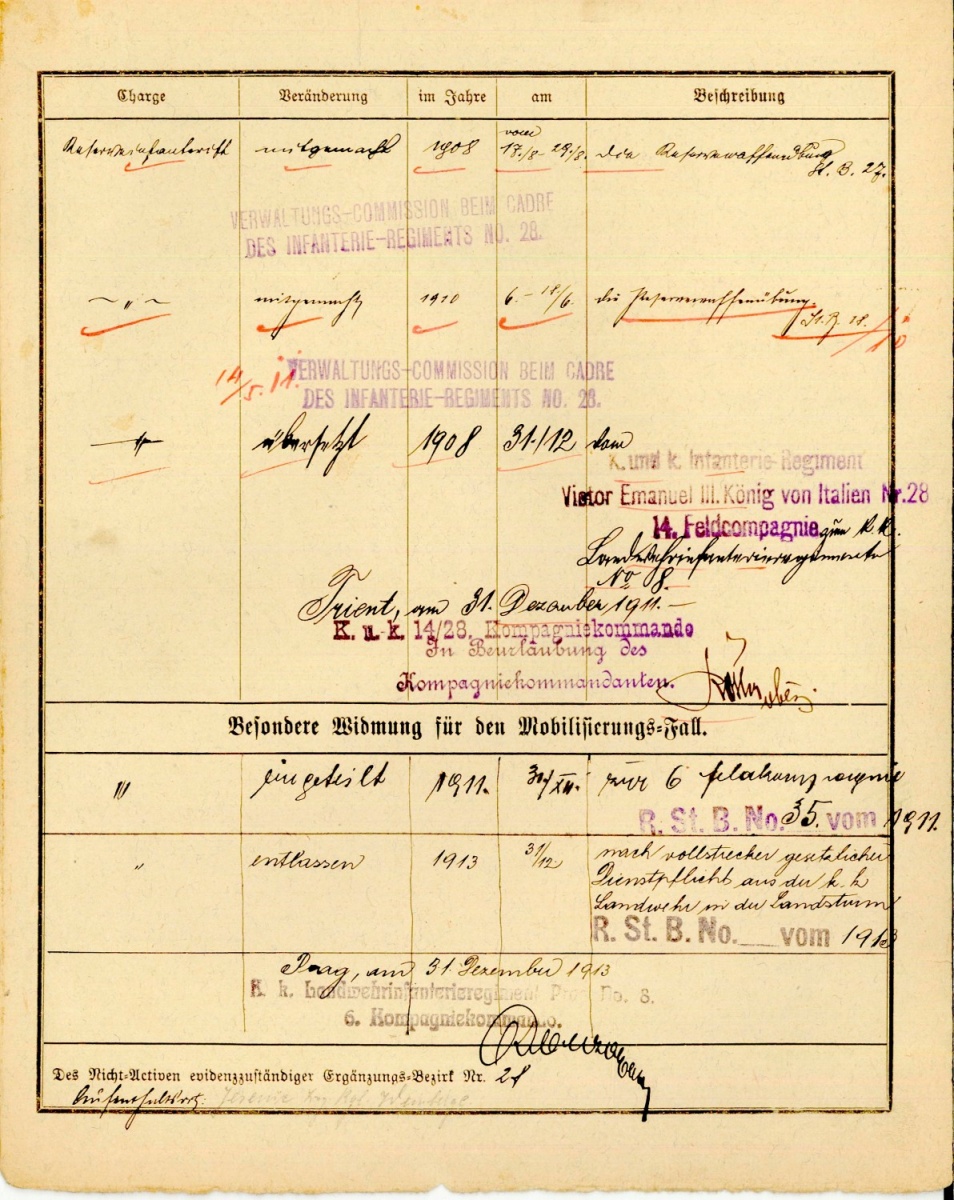 Charge Veränderung im Jahre am Beschreibung
Reserveinfanterist mitgemacht 1908 vom 17./8 - 29./8. die Reservewaffenübung
St. B. 27.
VERWALTUNGS-COMMISSION BEIM CADRE
DES INFANTERIE-REGIMENTS NO. 28.
~ " ~ mitgemacht 1910 6. - 18/6. die Reservewaffenübung.
St. B. 18.
14/5. 11.
VERWALTUNGS-COMMISSION BEIM CADRE
DES INFANTERIE-REGIMENTS NO. 28.
" übersetzt 1908 31./12 vom
K. und k. Infanterie-Regiment
Victor Emanuel III. König von Italien Nr. 28
14. Feldcompagnie zum k. k.
Landwehrinfanterieregimente
No 8.
Trient, am 31. Dezember 1911. –
K. u. k. 14/28. Kompagniekommando
In Beurlaubung des
Kompagniekommandanten.
Besondere Widmung für den Mobilisierungs-Fall.
" eingeteilt 1911. 31/XII. zur 6 feldkompagnie
R. St. B. No. 35. vom 1911.
" entlassen 1913 31/12 nach vollstrecker gesetzlicher
Dienstpflicht aus der k. k
Landwehr in der Landsturm
R. St. B. No. ___ vom 1913
Prag, am 31. Dezember 1913
K. k. Landwehrinfanterieregiment Prag No. 8.
6. Kompagniekommando.
Des Nicht-Activen evidenzzuständiger Ergänzungs-Bezirk Nr. 28
Aufenthaltsort: